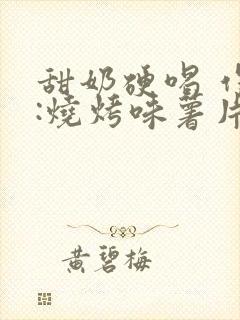 甜奶硬唱
:燒烤味薯片
黄碧梅